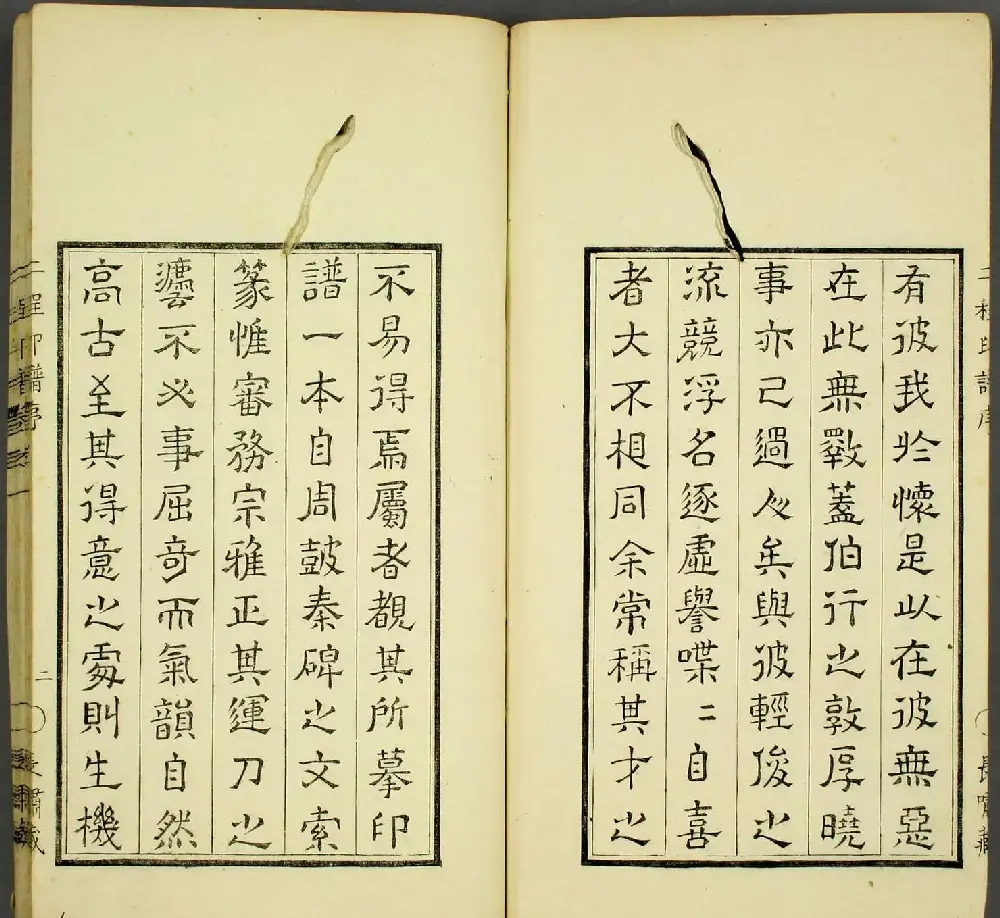 二程印譜序
長嘯藏
有彼我於懷是以在彼無惡
在此無斁蓋伯行之敦厚曉
事亦已過人矣與彼輕俊之
流競浮名逐虛譽喋二自喜
者大不相同余常稱其才之
不易得焉屬者覩其所摹印
譜一本自周鼓秦碑之文索
篆惟審務宗雅正其運刀之
灋不必事屈奇而氣韻自然
高古至其得意之處則生機
二程印譜序
二
長嘯藏